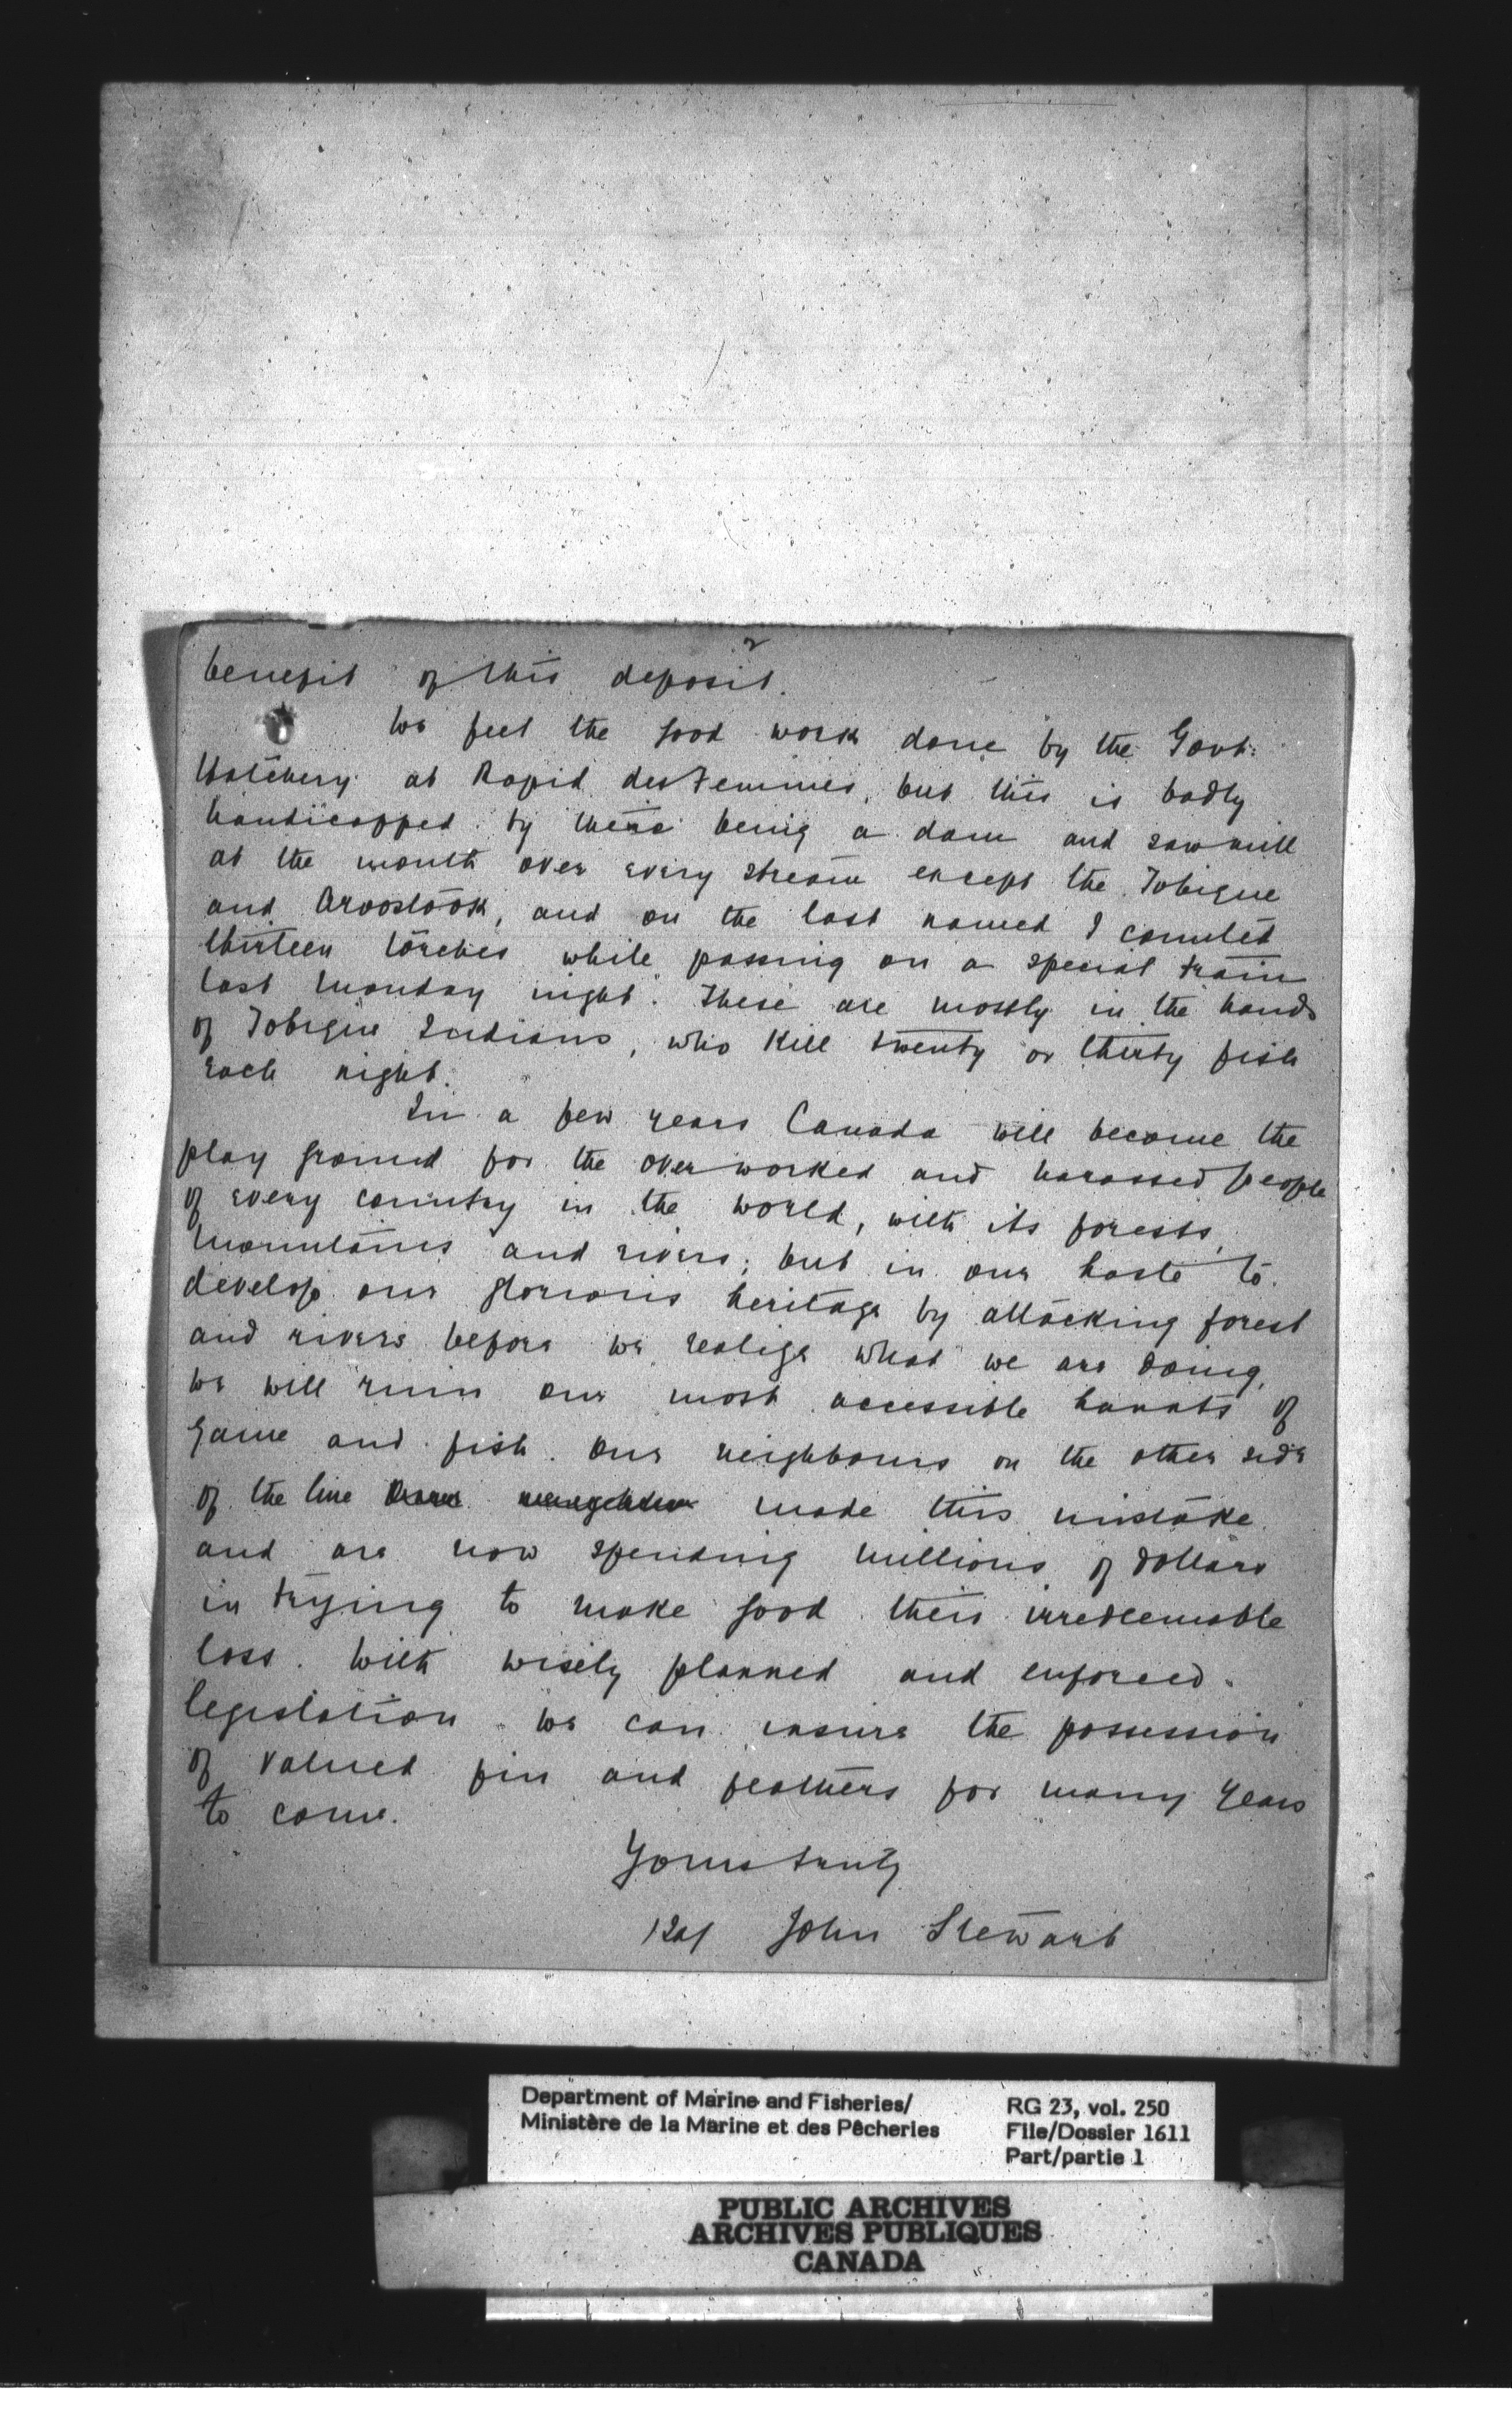 2
benefit of this deposit.
We feel the good work done by the Govt:
Hatchery at Rapid des Femmes, but this is badly
handicapped by there being a dam and saw mill
at the mouth over every stream except the Tobique
and Aroostook, and on the last named I counted
thirteen torches while passing on a special train
last Monday night. These are mostly in the hands
of Tobique Indians, who kill twenty or thirty fish
each night.
In a few years Canada will become the
play ground for the over worked and harassed people
of every country in the world, with its forests,
mountains and rivers; but in our haste to
develop our glorious heritage by attacking forest
and rivers before we realize what we are doing,
we will ruin our most accessible haunts of
game and fish. Our neighbours on the other side
of the line made this mistake
and are now spending millions of dollars
in trying to make good their irredeemable
loss. With wisely planned and enforced
legislation we can insure the possession
of valued fin and feathers for many years
to come.
Yours truly
John Stewart
Department of Marine and Fisheries/
Ministère de la Marine et des Pêcheries
RG 23, vol. 250
File/Dossier 1611
Part/partie 1
PUBLIC ARCHIVES
ARCHIVES PUBLIQUES
CANADA